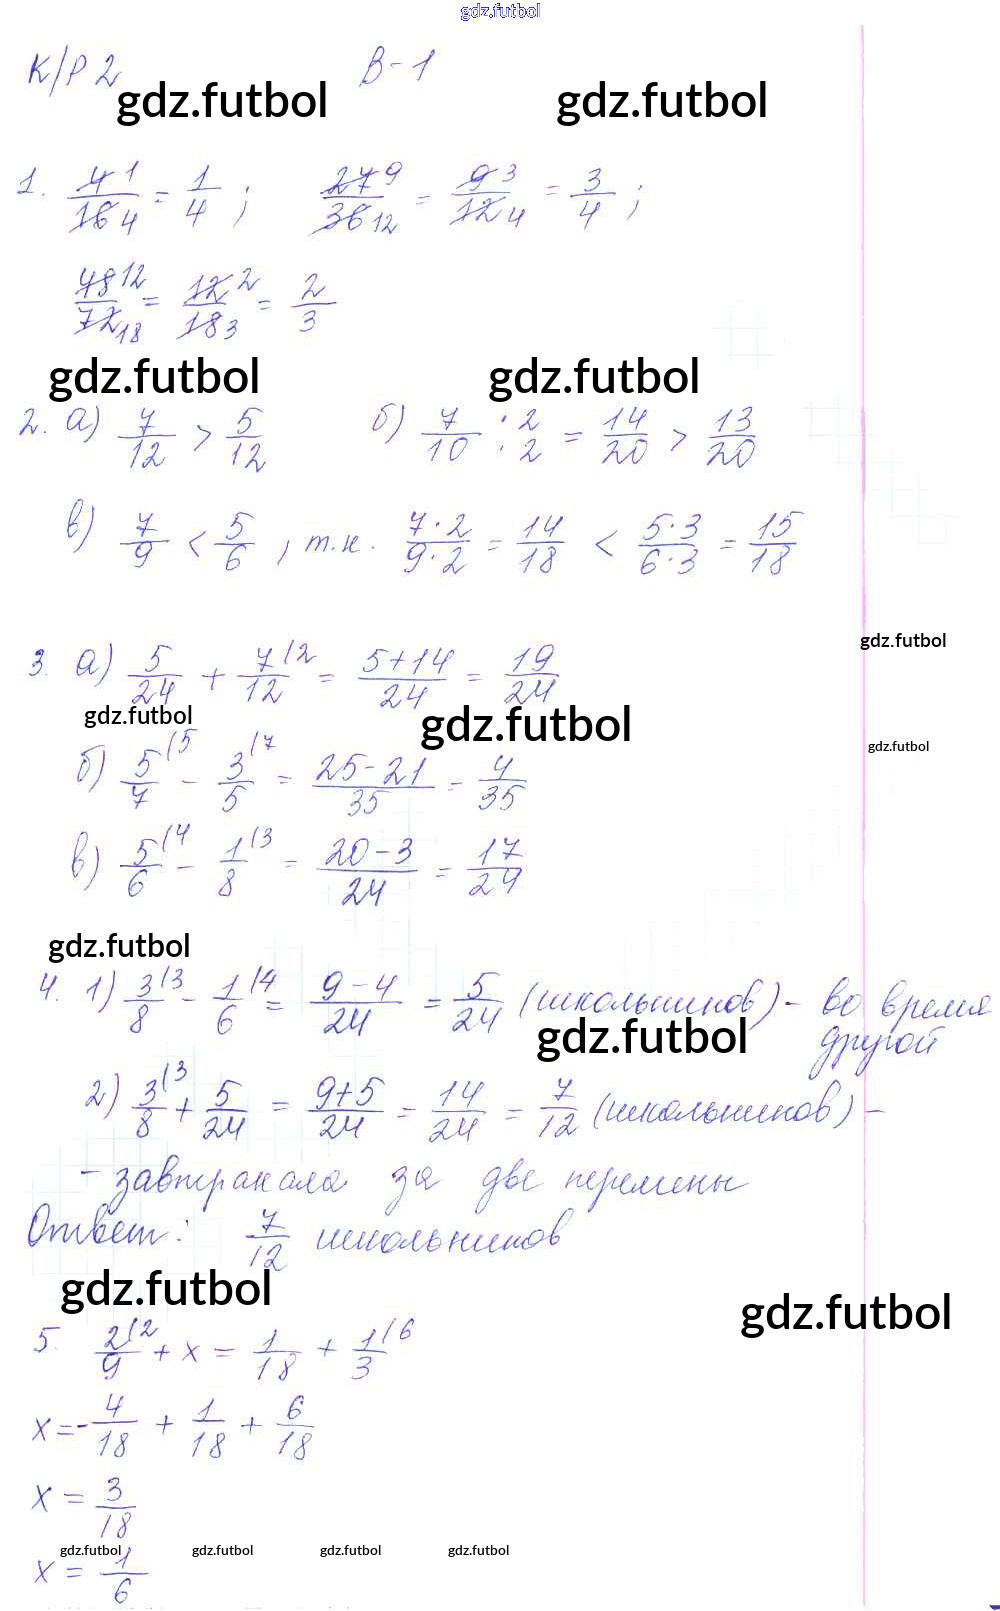 gdz.futbol
К/Р 2 В-1
gdz.futbol gdz.futbol
1. 4 1/16 4 = 1/4 ; 27 9/36 12 = 9 3/12 4 = 3/4 ;
48 12/72 18 = 12 2/18 3 = 2/3
gdz.futbol gdz.futbol
2. а) 7/12 > 5/12 б) 7/10 · 2/· 2 = 14/20 > 13/20
в) 7/9 < 5/6 , т.к. 7·2/9·2 = 14/18 < 5·3/6·3 = 15/18
gdz.futbol
3. а) 5/24 + 7/12 (2 = 5+14/24 = 19/24
gdz.futbol gdz.futbol
gdz.futbol
б) 5/7 (5 - 3/5 (7 = 25-21/35 = 4/35
в) 5/6 (4 - 1/8 (3 = 20-3/24 = 17/24
gdz.futbol
4. 1) 3/8 (3 - 1/6 (4 = 9-4/24 = 5/24 (школьников) - во время
другой
gdz.futbol
2) 3/8 (3 + 5/24 = 9+5/24 = 14/24 = 7/12 (школьников) -
- завтракала за две перемены
Ответ: 7/12 школьников
gdz.futbol gdz.futbol
5. 2/9 (2 + x = 1/18 + 1/3 (6
x = - 4/18 + 1/18 + 6/18
x = 3/18
gdz.futbol gdz.futbol gdz.futbol gdz.futbol
x = 1/6